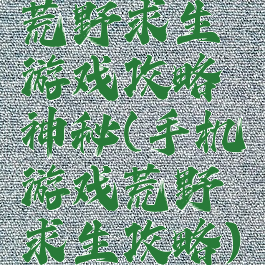 荒野求生
游戏攻略
神秘(手机
游戏荒野
求生攻略)